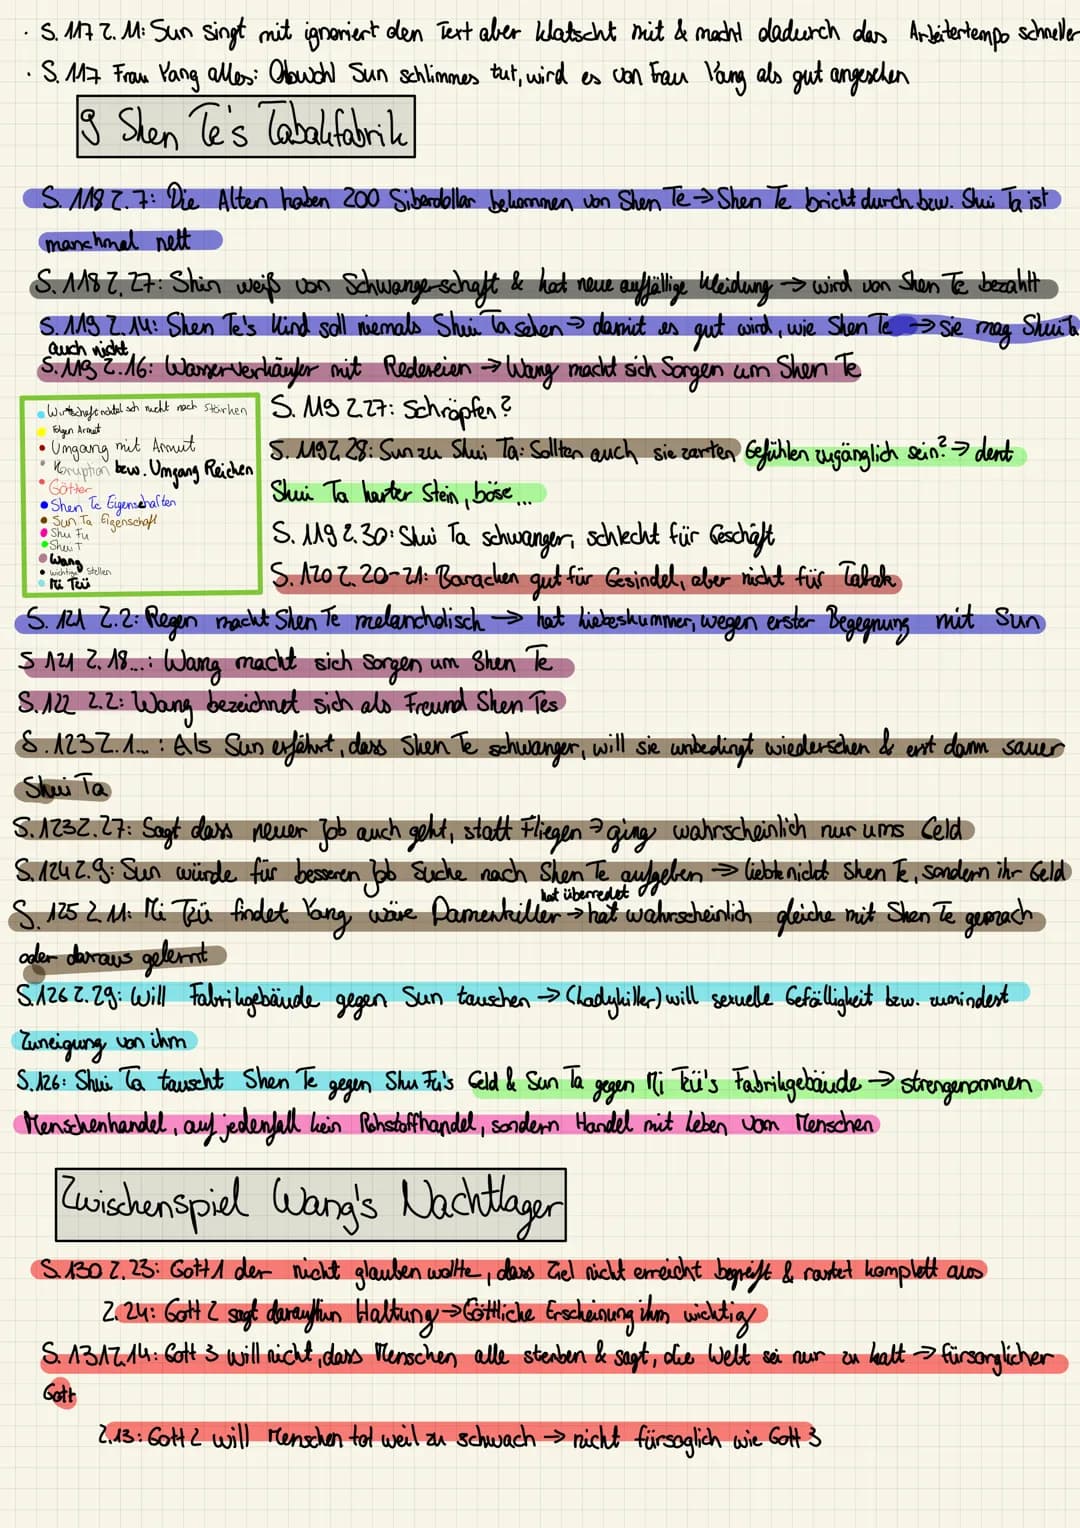 · S. 117 Z. 11: Sun singt mit ignoriert den Text aber klatscht mit & macht dadurch das Arbeitertempo schneller
· S. 117 Frau Yang alles: Obwohl Sun schlimmes tut, wird es von Frau Yang als gut angesehen
9 Shen Te's Tabakfabrik
S. 118 Z. 7: Die Alten haben 200 Siberdollar bekommen von Shen Te → Shen Te bricht durch bzw. Shui Ta ist
manchmal nett
S. 118 Z. 27: Shin weiß von Schwangerschaft & hat neue auffällige Kleidung → wird von Shen Te bezahlt
S. 119 Z. 14: Shen Te's Kind soll niemals Shui Ta sehen → damit es gut wird, wie Shen Te → sie mag Shui Ta
auch nicht
S. 119 Z. 16: Wasserverkäufer mit Redereien → Wang macht sich Sorgen um Shen Te
• Wirtschaft richtet sich nicht nach Stärken
• Folgen Armut
• Umgang mit Armut
• Korruption bzw. Umgang Reichen
• Götter
• Shen Te Eigenschaften
• Sun Ta Eigenschaft
• Shu Fu
• Shui T
• Wang
• wichtige Stellen
• Mi Tzü
S. 119 Z. 27: Schröpfen?
S. 119 Z. 28: Sun zu Shui Ta: Sollten auch sie zarten Gefühlen zugänglich sein? → denkt
Shui Ta harter Stein, böse...
S. 119 Z. 30: Shui Ta schwanger, schlecht für Geschäft
S. 120 Z. 20-21: Baracken gut für Gesindel, aber nicht für Tabak
S. 121 Z. 2: Regen macht Shen Te melancholisch → hat Liebeskummer, wegen erster Begegnung mit Sun
S 121 Z. 18...: Wang macht sich sorgen um Shen Te
S. 122 Z. 2: Wang bezeichnet sich als Freund Shen Tes
S. 123 Z. 1...: Als Sun erfährt, dass Shen Te schwanger, will sie unbedingt wiedersehen & erst dann sauer
Shui Ta
S. 123 Z. 27: Sagt dass neuer Job auch geht, statt Fliegen → ging wahrscheinlich nur ums Geld
S. 124 Z. 9: Sun würde für besseren Job Suche nach Shen Te aufgeben → liebte nicht Shen Te, sondern ihr Geld
hat überredet
S. 125 Z. 11: Mi Tzü findet Yang wäre Damenkiller → hat wahrscheinlich gleiche mit Shen Te gemach
oder daraus gelernt
S. 126 Z. 29: Will Fabrikgebäude gegen Sun tauschen → (Ladykiller) will sexuelle Gefälligkeit bzw. zumindest
Zuneigung von ihm
S. 126: Shui Ta tauscht Shen Te gegen Shu Fu's Geld & Sun Ta gegen Mi Tzü's Fabrikgebäude → strengenommen
Menschenhandel, auf jedenfall kein Rohstoffhandel, sondern Handel mit Leben vom Menschen
Zwischenspiel Wang's Nachtlager
S. 130 Z. 23: Gott 1 der nicht glauben wollte, dass Ziel nicht erreicht begreift & rastet komplett aus
Z. 24: Gott 2 sagt daraufhin Haltung → Göttliche Erscheinung ihm wichtig
S. 131 Z. 14: Gott 3 will nicht, dass Menschen alle sterben & sagt, die Welt sei nur zu kalt → fürsorglicher
Gott
Z. 13: Gott 2 will Menschen tot weil zu schwach → nicht fürsoglich wie Gott 3